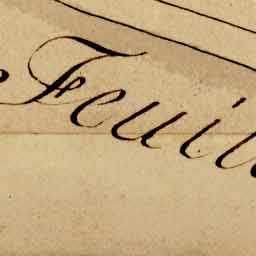 e Feuill